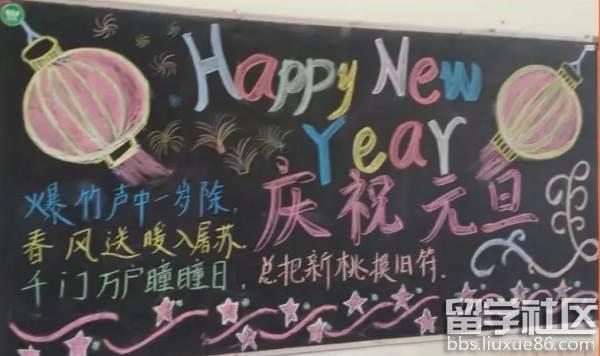 Happy New
Year
庆祝元旦
爆竹声中一岁除，
春风送暖入屠苏.
千门万户瞳瞳日，总把新桃换旧符.
留学社区
bbs.liuxue86.com